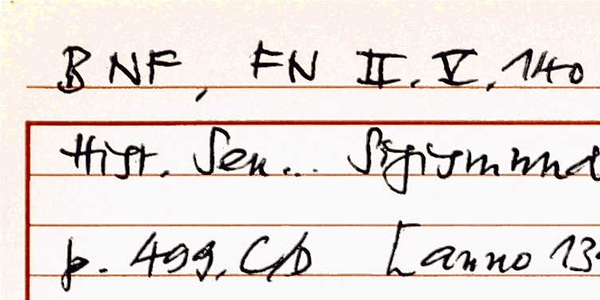 BNF, FN II. V. 140
Hist. Sen... Sigismund
p. 499, C/D [anno 13